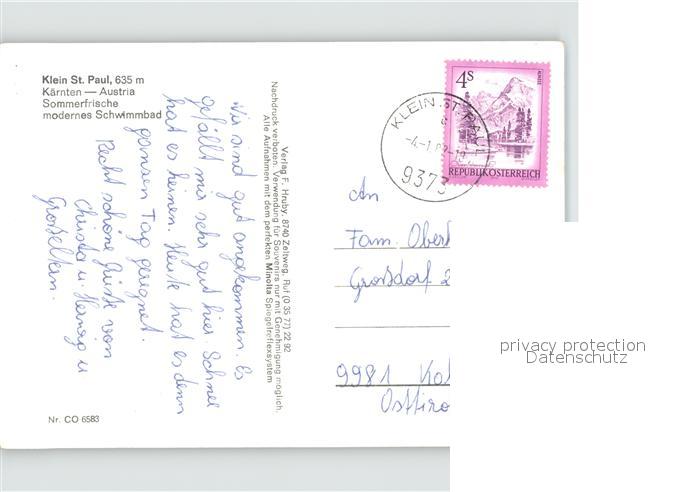 Klein St. Paul, 635 m
Kärnten — Austria
Sommerfrische
modernes Schwimmbad
Wir sind gut angekommen. Es
gefällt mir sehr gut hier. Schnee
hat es keinen. Heute hat es den
ganzen Tag geregnet.
Recht schöne Grüße von
Christa u. Herwig u
Großeltern.
Verlag F. Hruby, 8740 Zeltweg, Ruf (0 35 77) 22 92
Alle Aufnahmen mit dem perfekten Minolta Spiegelreflexsystem
Nachdruck verboten. Verwendung für Souvenirs nur mit Genehmigung möglich.
Nr. CO 6583
4 S
REPUBLIK ÖSTERREICH
KLEIN ST. PAUL
9373
An
Fam. Obert
Großdorf 2
9981 Kal
Osttiro
privacy protection
Datenschutz